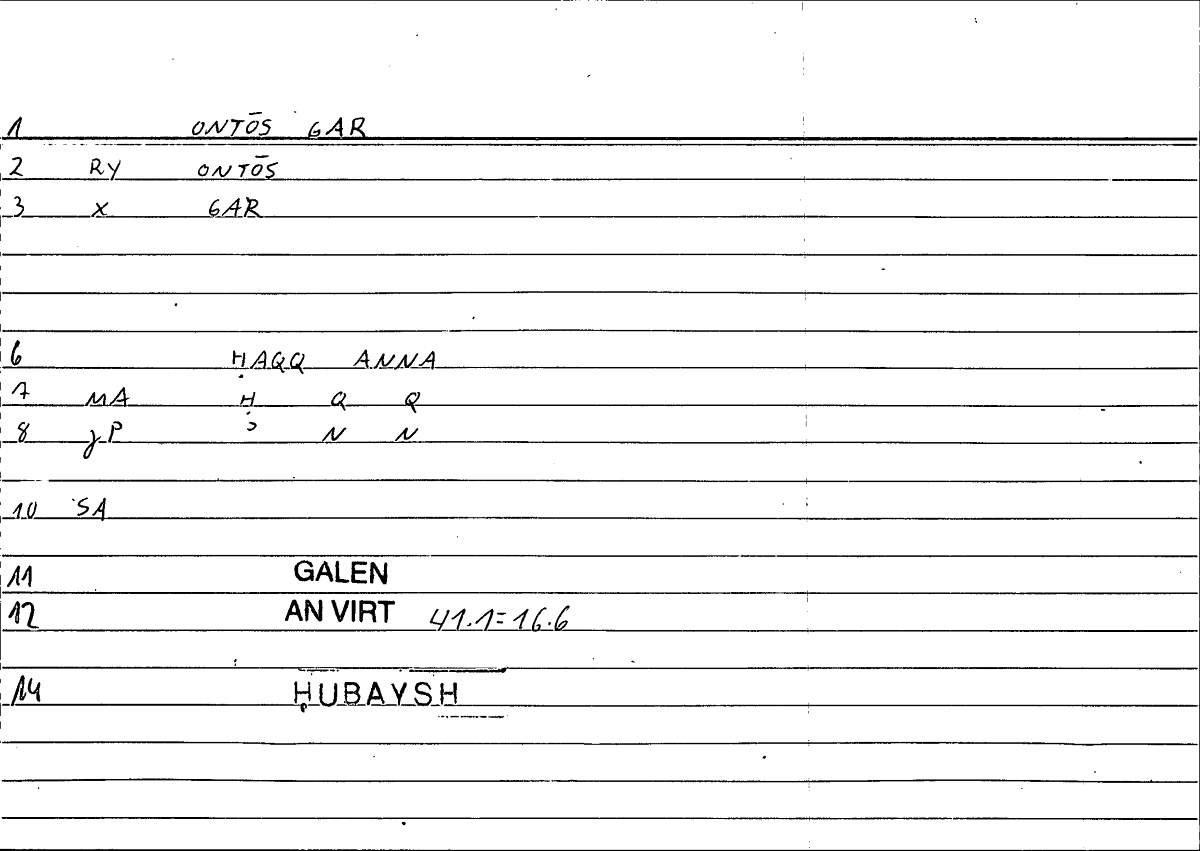 1 ONTŌS GAR
2 RY ONTŌS
3 X GAR
6 ḤAQQ ANNA
7 MA Ḥ Q Q
8 γP ʾ N N
10 SA
11 GALEN
12 AN VIRT 41.1=16.6
14 ḤUBAYSH